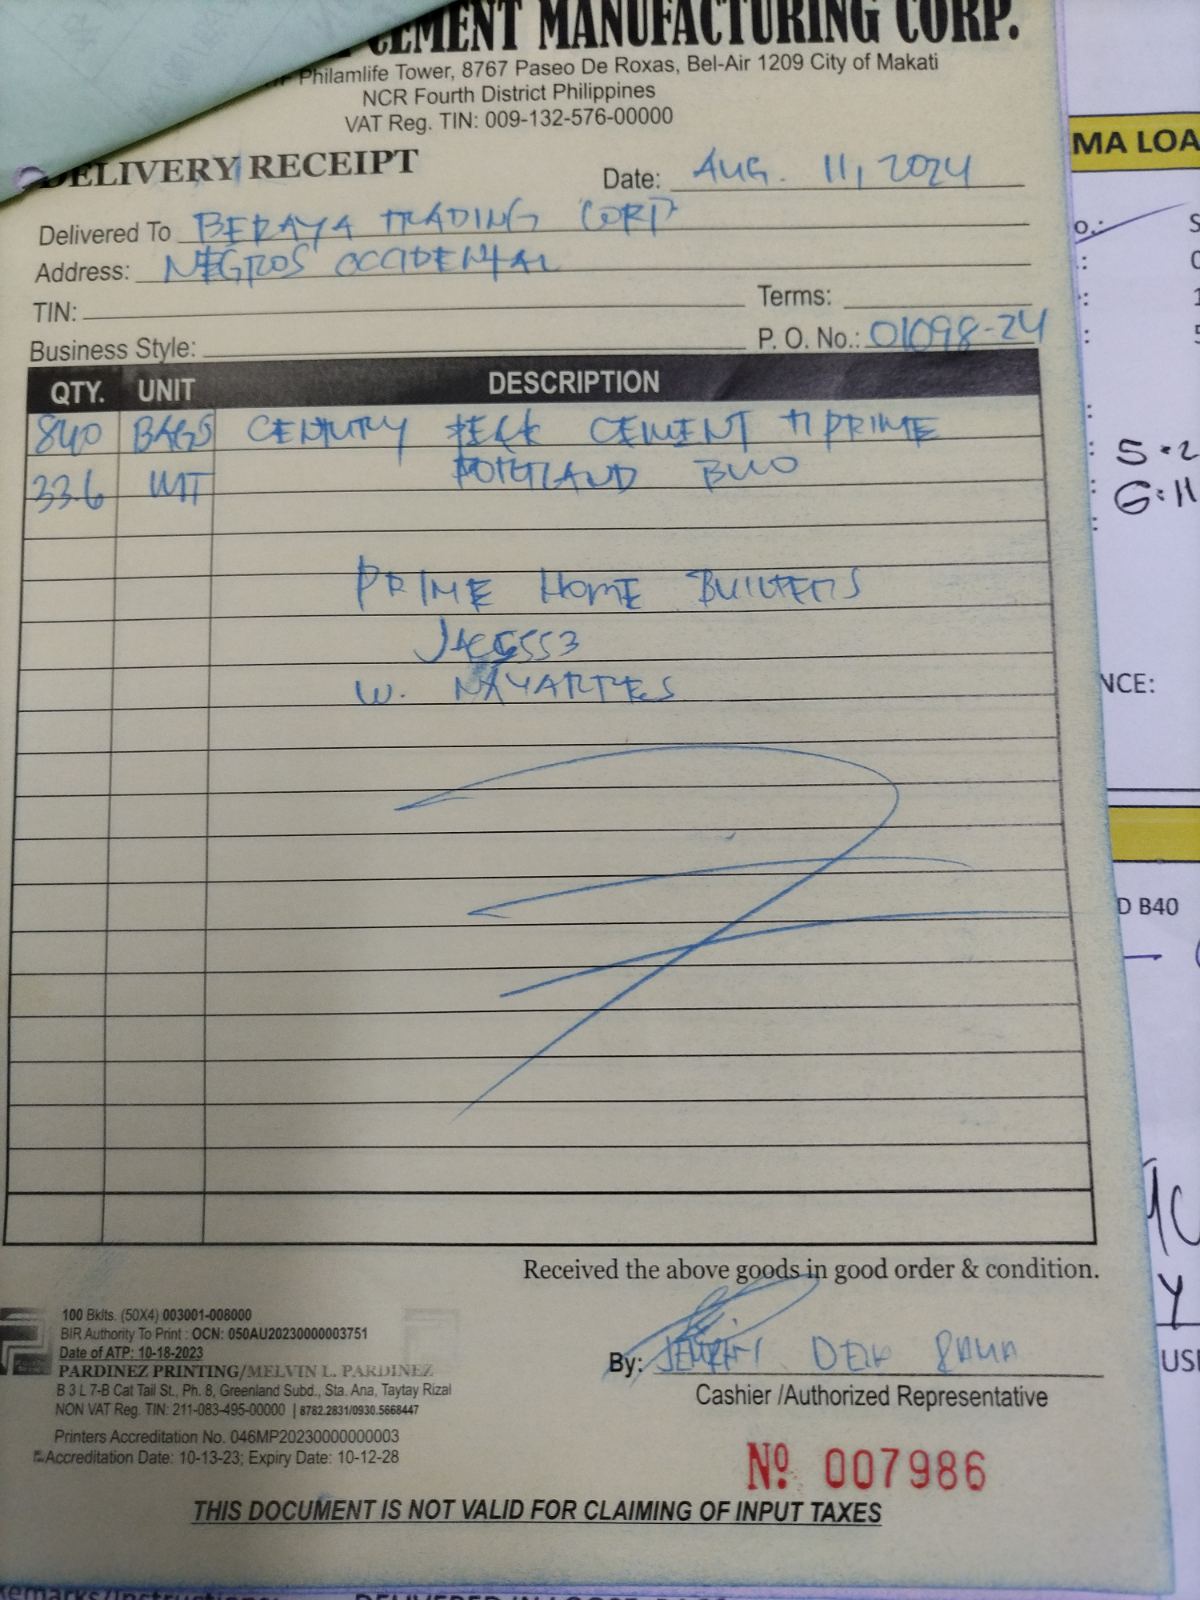 CEMENT MANUFACTURING CORP.
Philamlife Tower, 8767 Paseo De Roxas, Bel-Air 1209 City of Makati
NCR Fourth District Philippines
VAT Reg. TIN: 009-132-576-00000
DELIVERY RECEIPT
Date: AUG. 11, 2024
Delivered To BERAYA TRADING CORP
Address: NEGROS OCCIDENTAL
TIN:
Terms:
Business Style:
P. O. No.: 01098-24
QTY. UNIT DESCRIPTION
840 BAGS CENTURY PEAK CEMENT PRIME
33.6 MT PORTLAND
PRIME HOME BUILDERS
W. NAVARTES
Received the above goods in good order & condition.
By:
Cashier /Authorized Representative
100 Bklts. (50X4) 003001-008000
BIR Authority To Print : OCN: 050AU20230000003751
Date of ATP: 10-18-2023
PARDINEZ PRINTING/MELVIN L. PARDINEZ
B 3 L 7-B Cat Tail St., Ph. 8, Greenland Subd., Sta. Ana, Taytay Rizal
NON VAT Reg. TIN: 211-083-495-00000 | 8782.2831/0930.5668447
Printers Accreditation No. 046MP20230000000003
Accreditation Date: 10-13-23; Expiry Date: 10-12-28
Nº 007986
THIS DOCUMENT IS NOT VALID FOR CLAIMING OF INPUT TAXES
MA LOA
NCE:
D B40